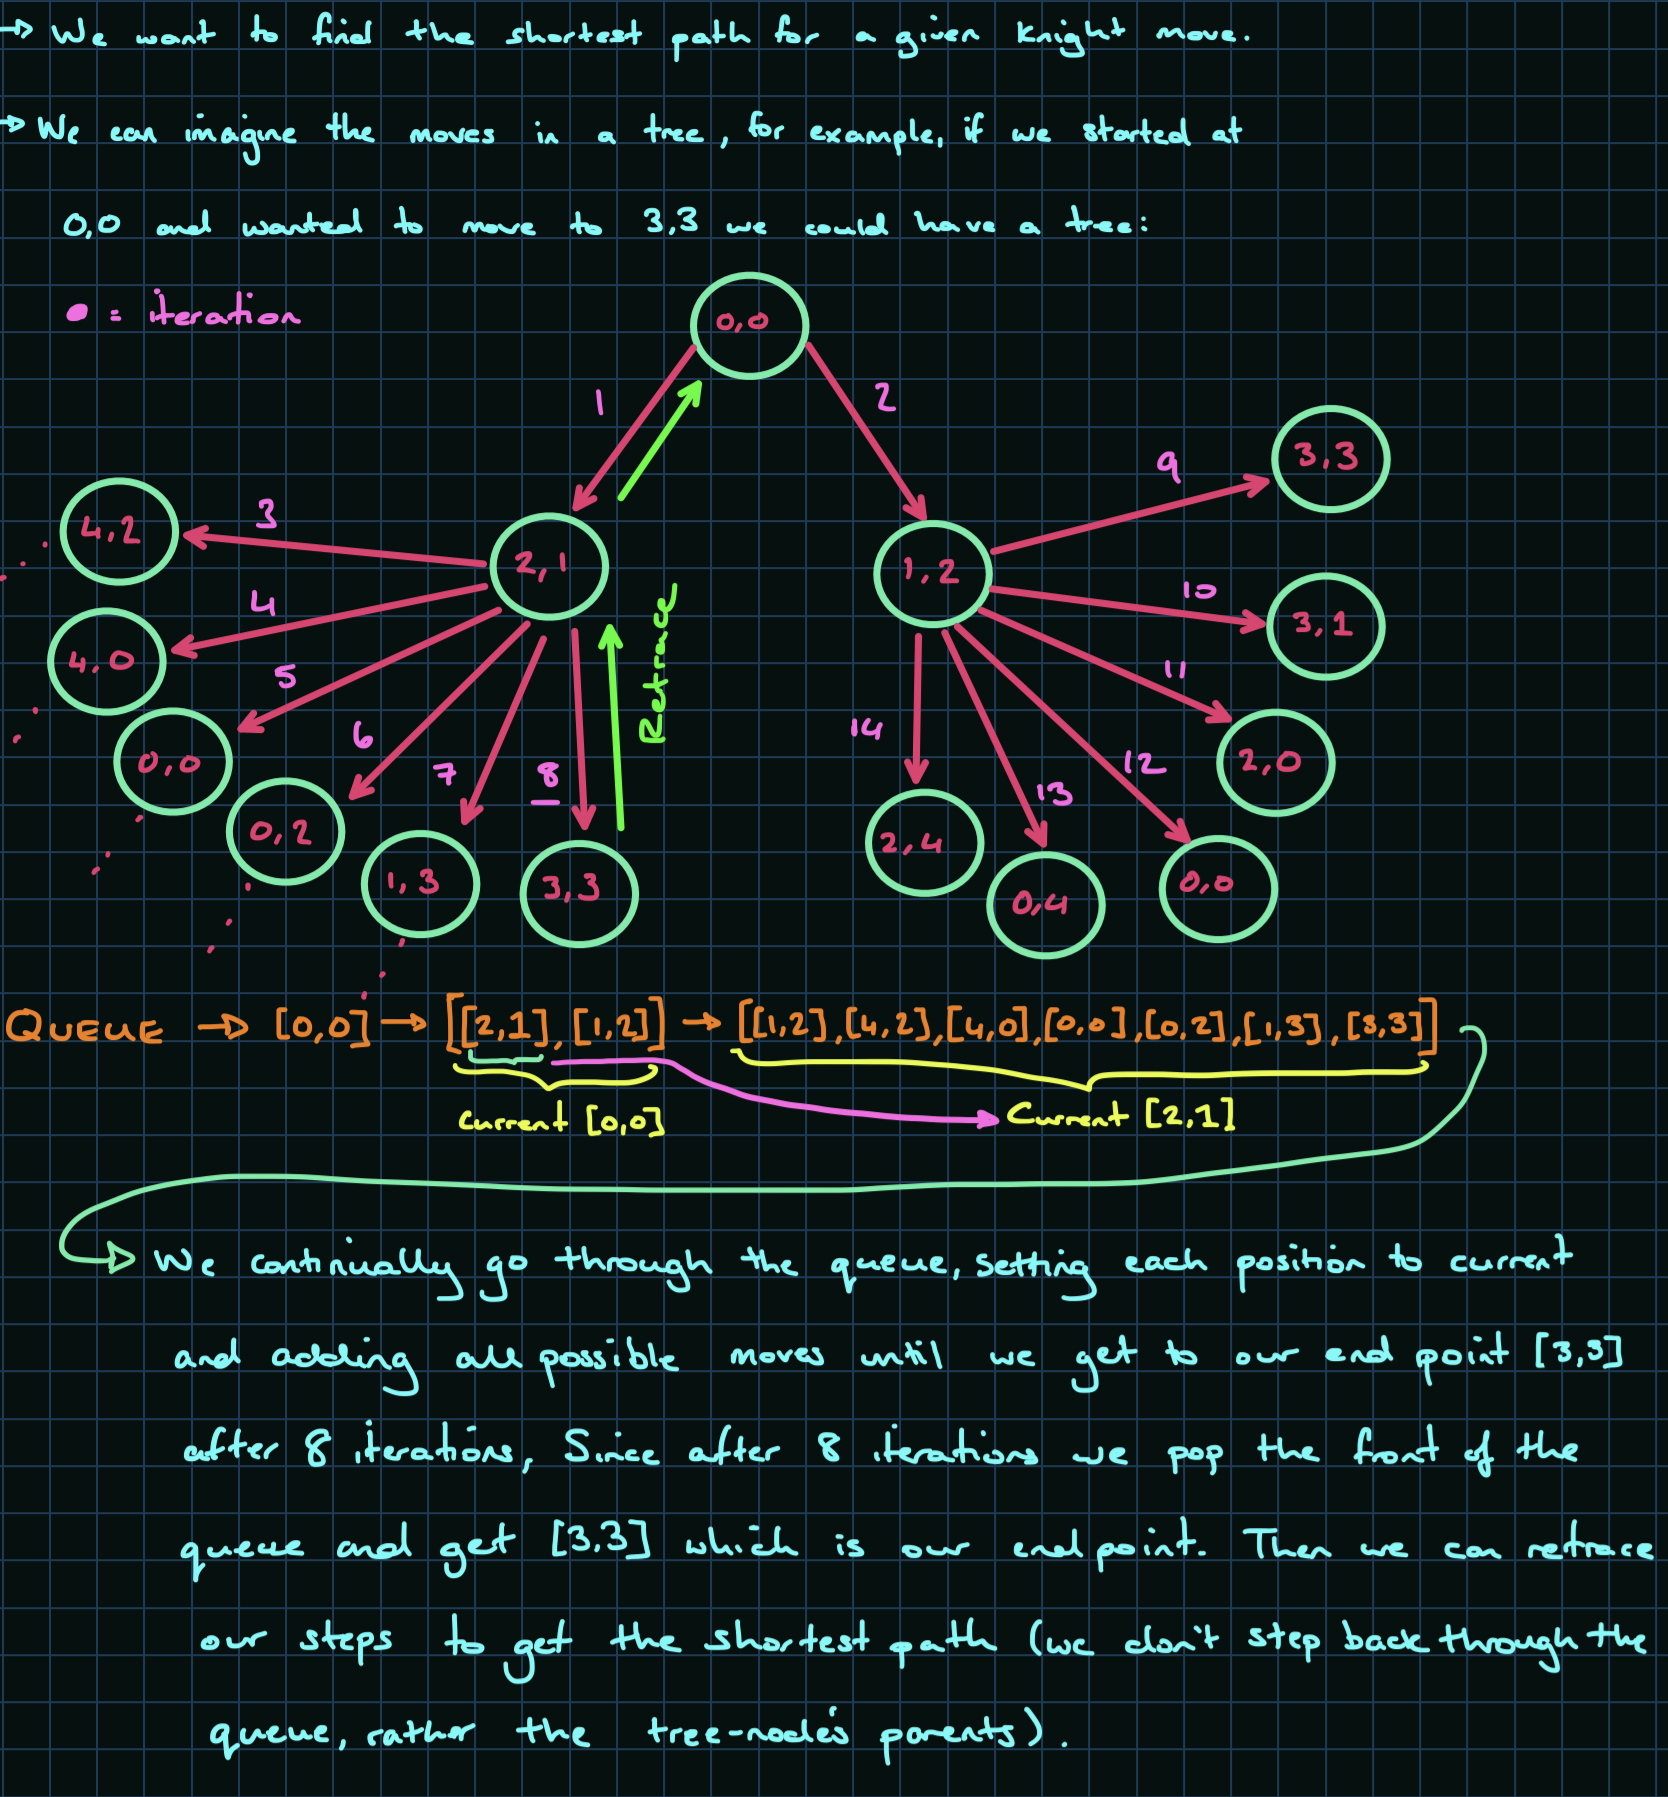 → We want to find the shortest path for a given knight move.
→ We can imagine the moves in a tree, for example, if we started at
0,0 and wanted to move to 3,3 we could have a tree:
● = iteration
0,0
1
2
2,1
1,2
3
4,2
4
4,0
5
0,0
6
0,2
7
1,3
8
3,3
Retrace
9
3,3
10
3,1
11
2,0
12
0,0
13
0,4
14
2,4
QUEUE → [0,0] → [[2,1], [1,2]] → [[1,2],[4,2],[4,0],[0,0],[0,2],[1,3],[3,3]]
Current [0,0]
Current [2,1]
We continually go through the queue, setting each position to current
and adding all possible moves until we get to our end point [3,3]
after 8 iterations, Since after 8 iterations we pop the front of the
queue and get [3,3] which is our endpoint. Then we can retrace
our steps to get the shortest path (we don't step back through the
queue, rather the tree-node's parents).